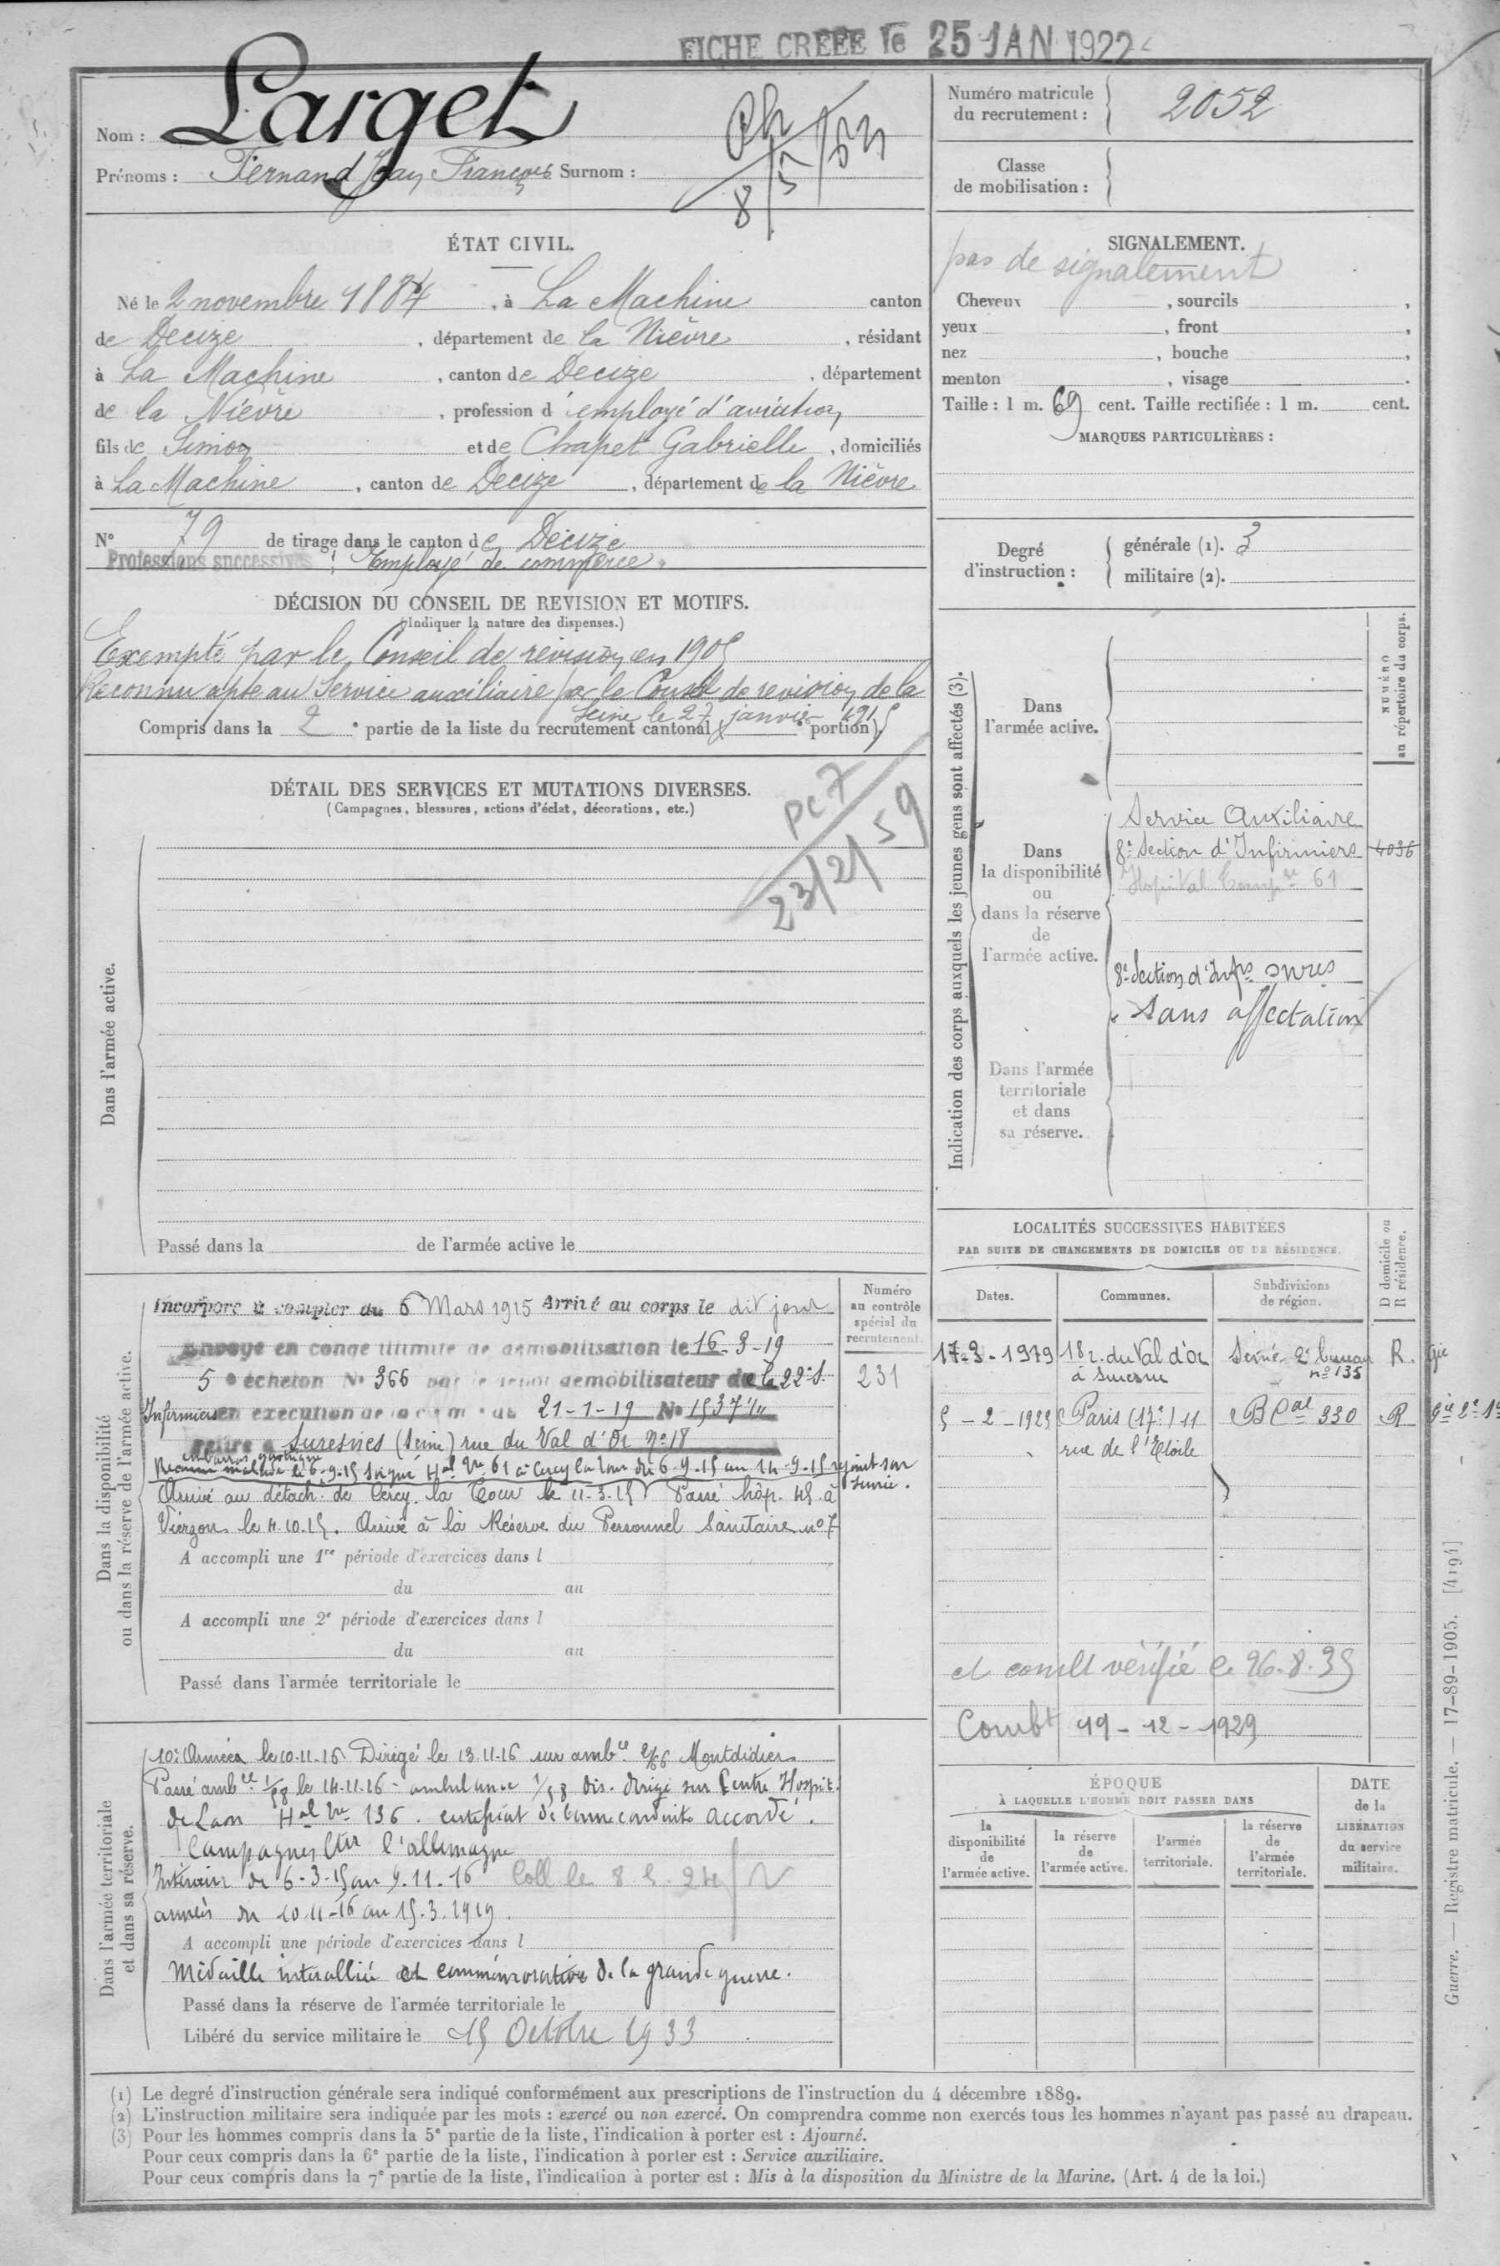 FICHE CRÉÉE le 25 JAN 1922
Nom : Larget
Prénoms : Fernand Jean François Surnom :
8/5/
Numéro matricule du recrutement : 2052
Classe de mobilisation :
ÉTAT CIVIL.
Né le 2 novembre 1884, à La Machine canton
de Decize, département de la Nièvre, résidant
à La Machine, canton de Decize, département
de la Nièvre, profession d'employé d'aviation
fils de Simon et de Chapet Gabrielle, domiciliés
à La Machine, canton de Decize, département de la Nièvre
N° 79 de tirage dans le canton de Decize
Professions successives : Employé de commerce.
SIGNALEMENT.
pas de signalement
Cheveux , sourcils ,
yeux , front ,
nez , bouche ,
menton , visage .
Taille : 1 m. 69 cent. Taille rectifiée : 1 m. cent.
MARQUES PARTICULIÈRES :
Degré d'instruction :
générale (1). 3
militaire (2).
DÉCISION DU CONSEIL DE RÉVISION ET MOTIFS.
(Indiquer la nature des dispenses.)
Exempté par le Conseil de révision en 1905
Reconnu apte au Service auxiliaire par le Conseil de révision de la
Seine le 27 janvier 1915
Compris dans la 2e partie de la liste du recrutement cantonal ( e portion)
DÉTAIL DES SERVICES ET MUTATIONS DIVERSES.
(Campagnes, blessures, actions d'éclat, décorations, etc.)
23/2/59
Dans l'armée active.
Passé dans la de l'armée active le
Indication des corps auxquels les jeunes gens sont affectés (3).
NUMÉRO au répertoire du corps.
Dans l'armée active.
Dans la disponibilité ou dans la réserve de l'armée active.
Service Auxiliaire
8e Section d'Infirmiers 4036
Hopital Tempre 61
8e Section d'Infrs
Sans affectation
Dans l'armée territoriale et dans sa réserve.
Dans la disponibilité ou dans la réserve de l'armée active.
Incorporé à compter du 6 Mars 1915 Arrivé au corps le dit jour
Envoyé en congé illimité de démobilisation le 16-3-19
5e échelon N° 366 par le dépôt démobilisateur de la 22e S.
Infirmiers en exécution de la 21-1-19 N°
se retire à Suresnes (Seine) rue du Val d'Or n° 18
embarras gastrique
Reconnu malade le 6-9-15 soigné Hal Vre 61 à Cercy la Tour du 6-9-15 au 14-9-15 rejoint son service.
Arrivé au détacht de Cercy la Tour le 11-3-15 Passé hôp. 45 à
Vierzon le 4.10.15. Arrivé à la Réserve du Personnel Sanitaire n° 7
A accompli une 1re période d'exercices dans l
du au
A accompli une 2e période d'exercices dans l
du au
Passé dans l'armée territoriale le
Numéro au contrôle spécial du recrutement.
231
LOCALITÉS SUCCESSIVES HABITÉES
PAR SUITE DE CHANGEMENTS DE DOMICILE OU DE RÉSIDENCE.
Dates. Communes. Subdivisions de région. D domicile ou R résidence.
17-3-1919 18 r. du Val d'Or à Suresnes Seine 2e bureau n° 135 R.
5-2-1925 Paris (17e) 11 rue de l'Etoile B Cal 330 R
vérifié le 26.8.35
19-12-1929
Dans l'armée territoriale et dans sa réserve.
10e Armée le 10-11-16 Dirigé le 13.11-16 sur ambce Montdidier
Passé ambce 1/58 le 14-11-16 - ambulance 1/58 dis. dirigé sur Centre Hospit.
de Laon Hal Vre 136. certificat de bonne conduite accordé.
Campagnes Ctre l'allemagne
Intérieur du 6-3-15 au 9-11-16
armées du 10-11-16 au 15.3.1919.
A accompli une période d'exercices dans l
Médaille interalliée et commémorative de la grande guerre.
Passé dans la réserve de l'armée territoriale le
Libéré du service militaire le 15 Octobre 1933
ÉPOQUE
À LAQUELLE L'HOMME DOIT PASSER DANS
la disponibilité de l'armée active.
la réserve de l'armée active.
l'armée territoriale.
la réserve de l'armée territoriale.
DATE de la LIBÉRATION du service militaire.
Guerre. — Registre matricule. — 17-89-1905. [4194]
(1) Le degré d'instruction générale sera indiqué conformément aux prescriptions de l'instruction du 4 décembre 1889.
(2) L'instruction militaire sera indiquée par les mots : exercé ou non exercé. On comprendra comme non exercés tous les hommes n'ayant pas passé au drapeau.
(3) Pour les hommes compris dans la 5e partie de la liste, l'indication à porter est : Ajourné.
Pour ceux compris dans la 6e partie de la liste, l'indication à porter est : Service auxiliaire.
Pour ceux compris dans la 7e partie de la liste, l'indication à porter est : Mis à la disposition du Ministre de la Marine. (Art. 4 de la loi.)